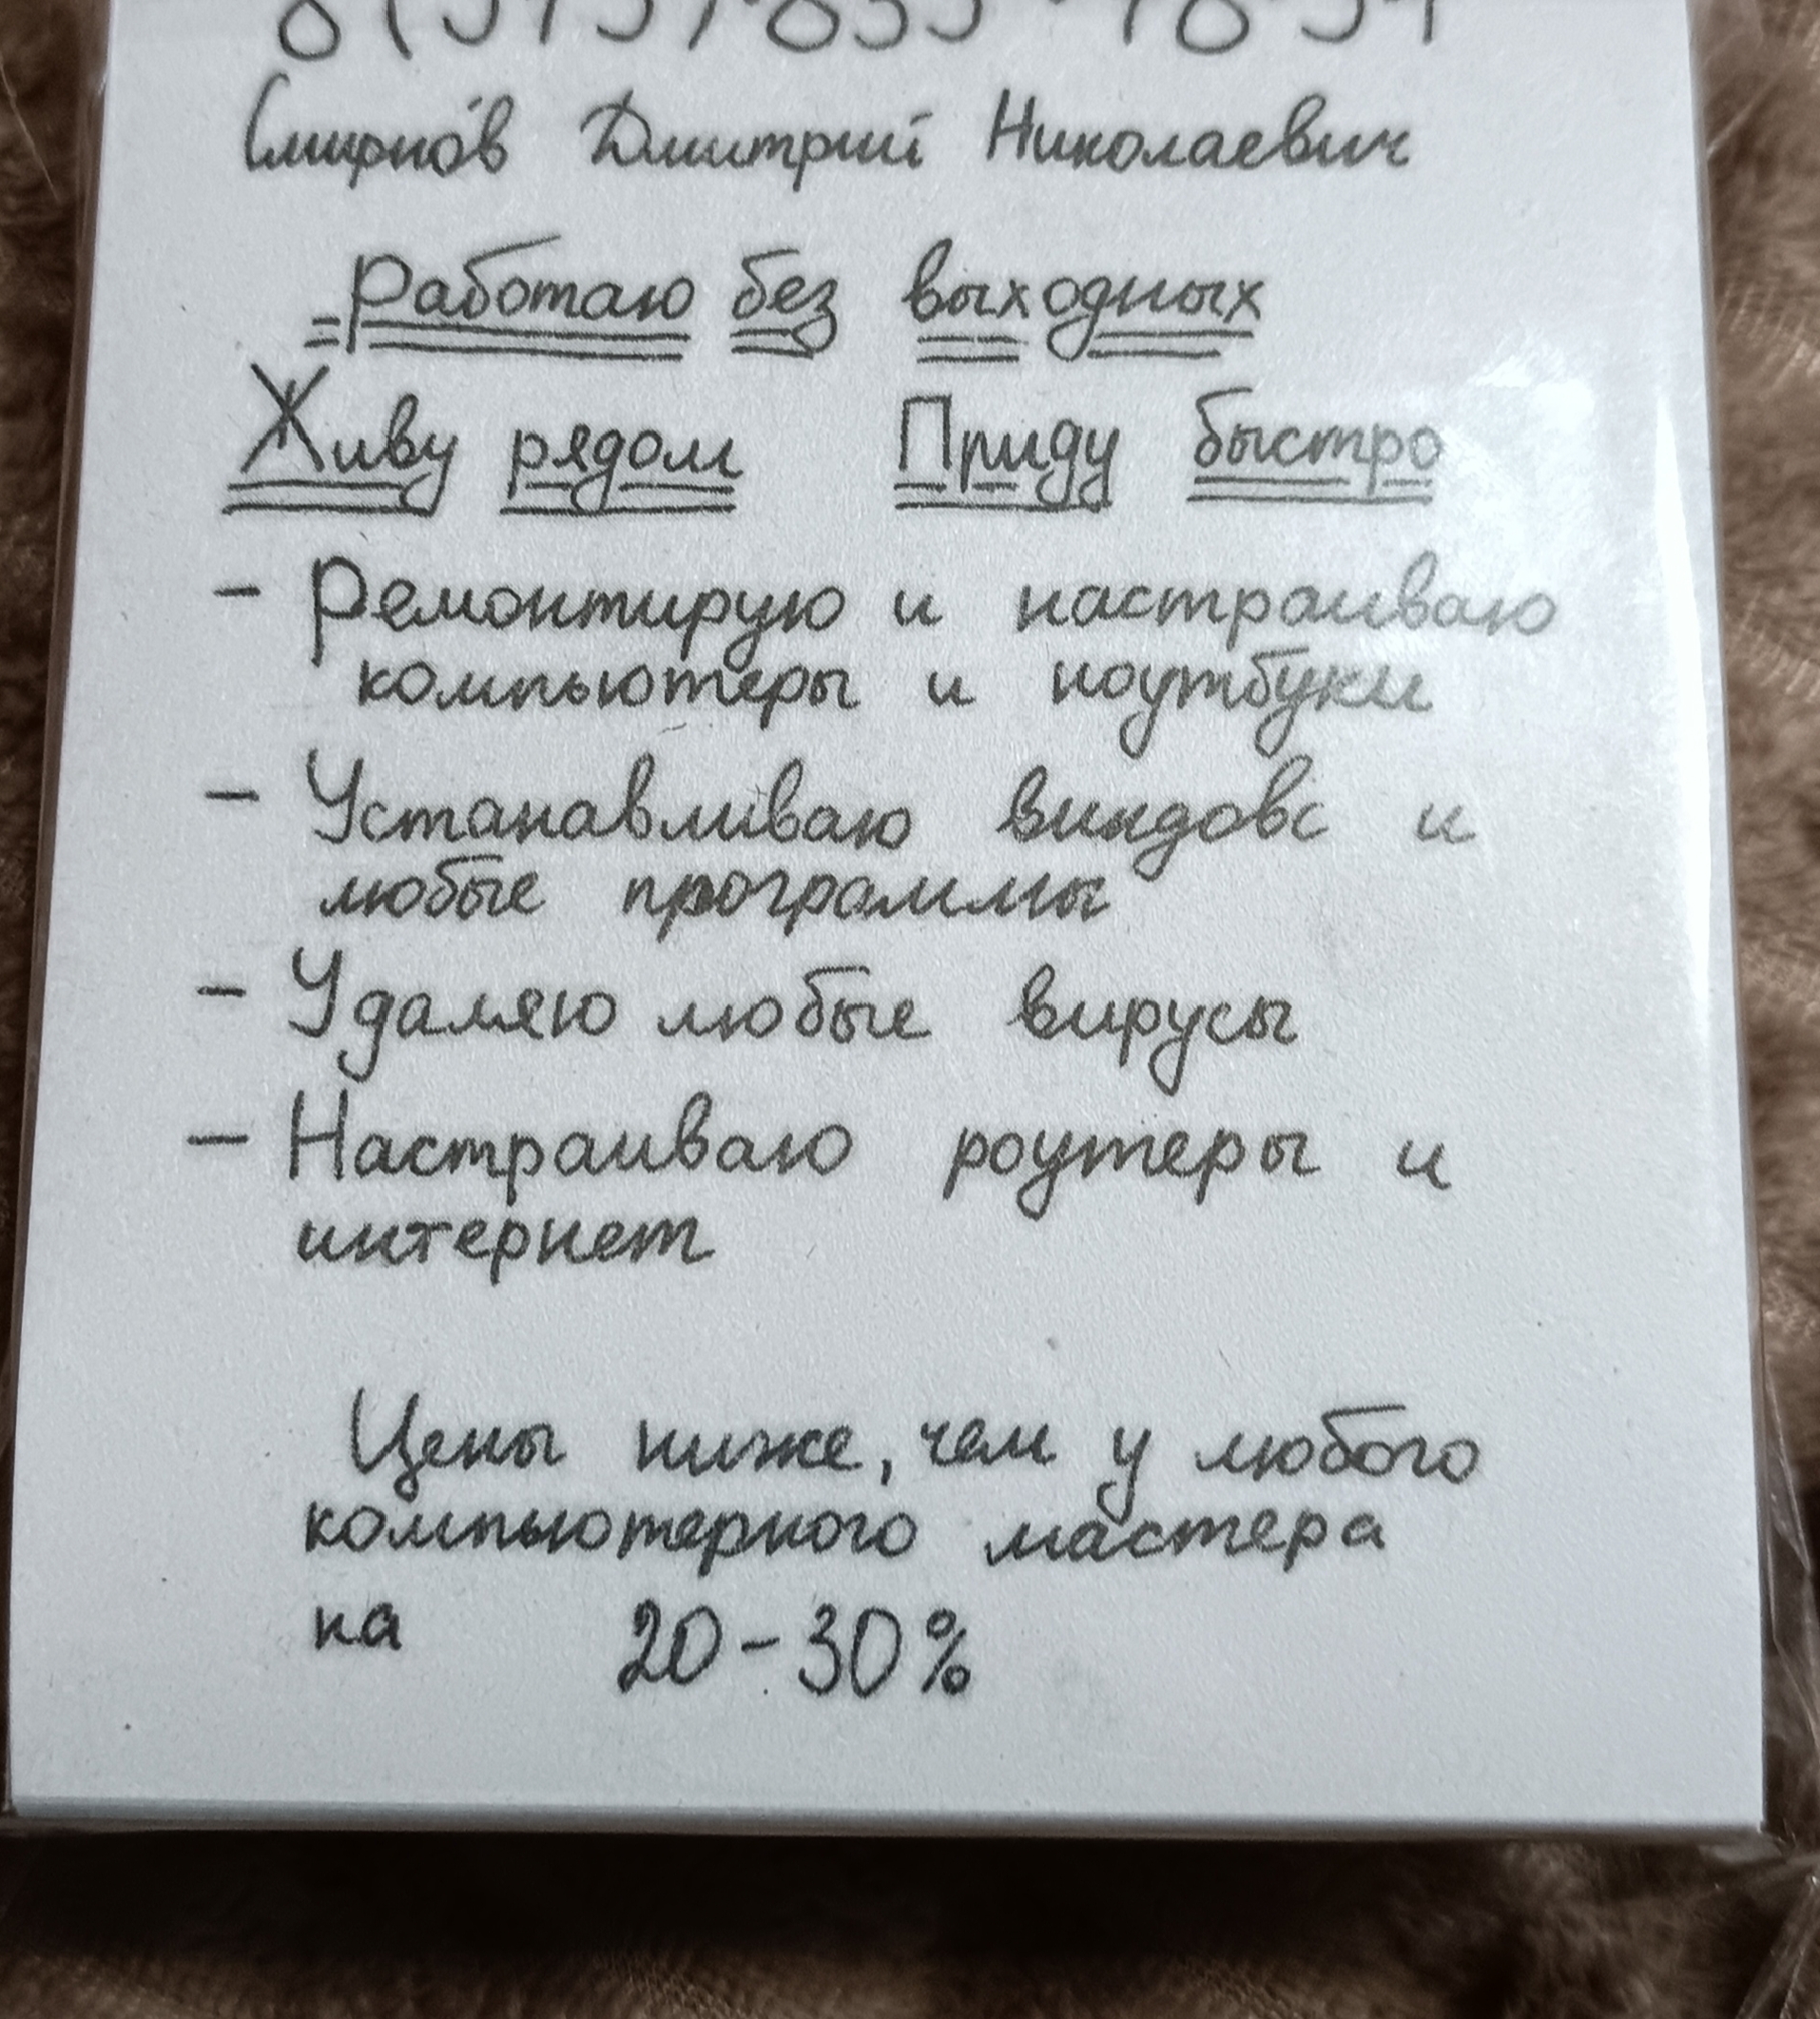 Смирнов Дмитрий Николаевич
Работаю без выходных
Живу рядом Приду быстро
- Ремонтирую и настраиваю
компьютеры и ноутбуки
- Устанавливаю виндовс и
любые программы
- Удаляю любые вирусы
- Настраиваю роутеры и
интернет
Цены ниже, чем у любого
компьютерного мастера
на 20-30%